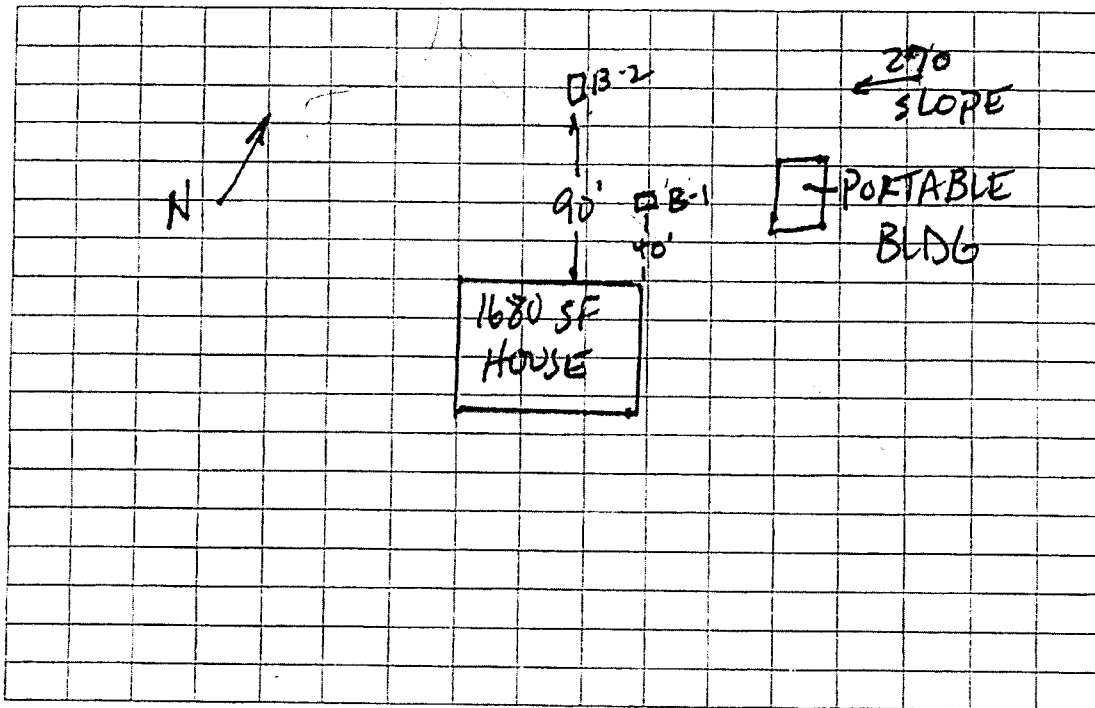 B-2
2%
SLOPE
N
90'
B-1
40'
PORTABLE
BLDG
1680 SF
HOUSE